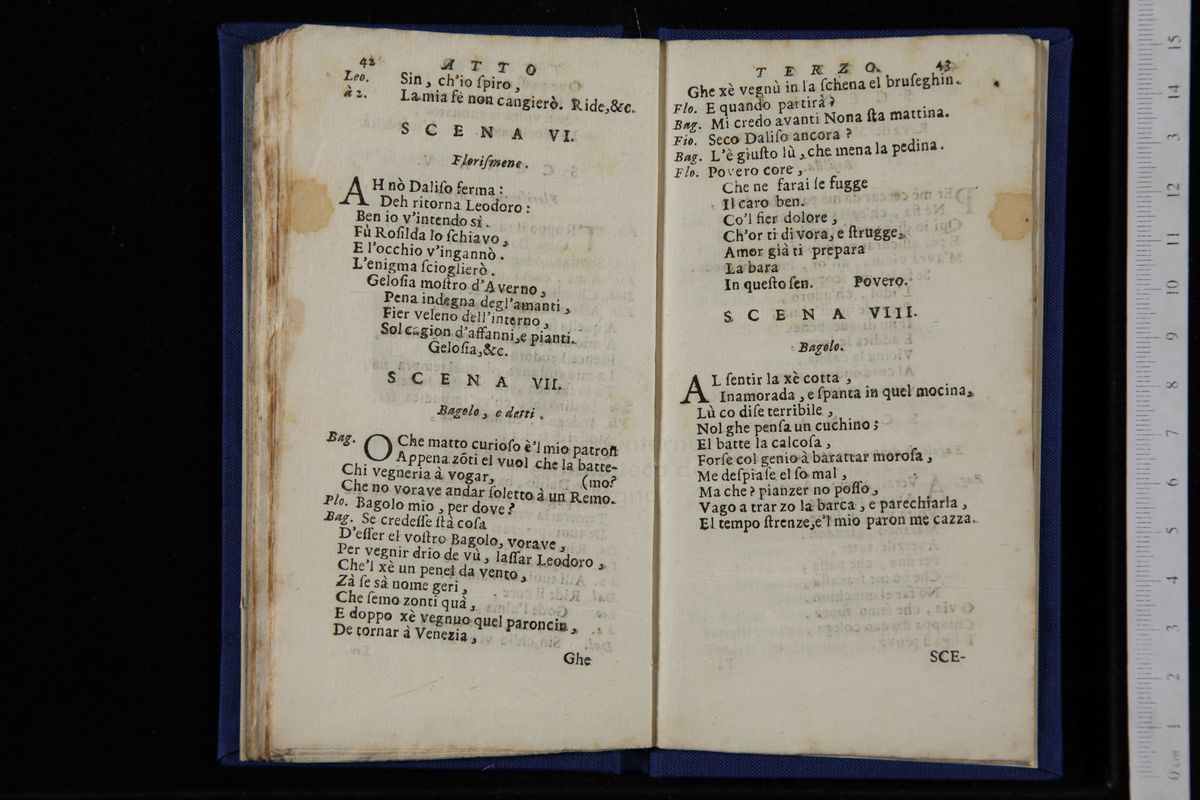 42 ATTO
Leo. Sin, ch'io ſpiro,
à 2. La mia fè non cangierò. Ride,&c.
SCENA VI.
Floriſmene.
AH nò Daliſo ferma:
Deh ritorna Leodoro:
Ben io v'intendo sì.
Fù Roſilda lo ſchiavo,
E l'occhio v'ingannò.
L'enigma ſcioglierò.
Geloſia moſtro d'Averno,
Pena indegna degl'amanti,
Fier veleno dell'interno,
Sol cagion d'affanni,e pianti.
Geloſia,&c.
SCENA VII.
Bagolo, e detti.
Bag. OChe matto curioſo è'l mio patron
Appena zōti el vuol che la batte-
Chi vegneria à vogar, (mo?
Che no vorave andar ſoletto à un Remo.
Flo. Bagolo mio, per dove?
Bag. Se credeſſe ſtà coſa
D'eſſer el voſtro Bagolo, vorave,
Per vegnir drio de vù, laſſar Leodoro,
Che'l xè un penel da vento,
Zà ſe sà nome geri,
Che ſemo zonti quà,
E doppo xè vegnuo quel paroncin,
De tornar à Venezia,
Ghe
TERZO. 43
Ghe xè vegnù in la ſchena el bruſeghin.
Flo. E quando partirà?
Bag. Mi credo avanti Nona ſta mattina.
Flo. Seco Daliſo ancora?
Bag. L'è giuſto lù, che mena la pedina.
Flo. Povero core,
Che ne farai ſe fugge
Il caro ben.
Co'l fier dolore,
Ch'or ti divora, e ſtrugge,
Amor già ti prepara
La bara
In queſto ſen. Povero.
SCENA VIII.
Bagolo.
AL ſentir la xè cotta,
Inamorada, e ſpanta in quel mocina,
Lù co diſe terribile,
Nol ghe penſa un cuchino;
El batte la calcoſa,
Forſe col genio à barattar moroſa,
Me deſpiaſe el ſo mal,
Ma che? pianzer no poſſo,
Vago a trar zo la barca, e parechiarla,
El tempo ſtrenze,e'l mio paron me cazza.
SCE-